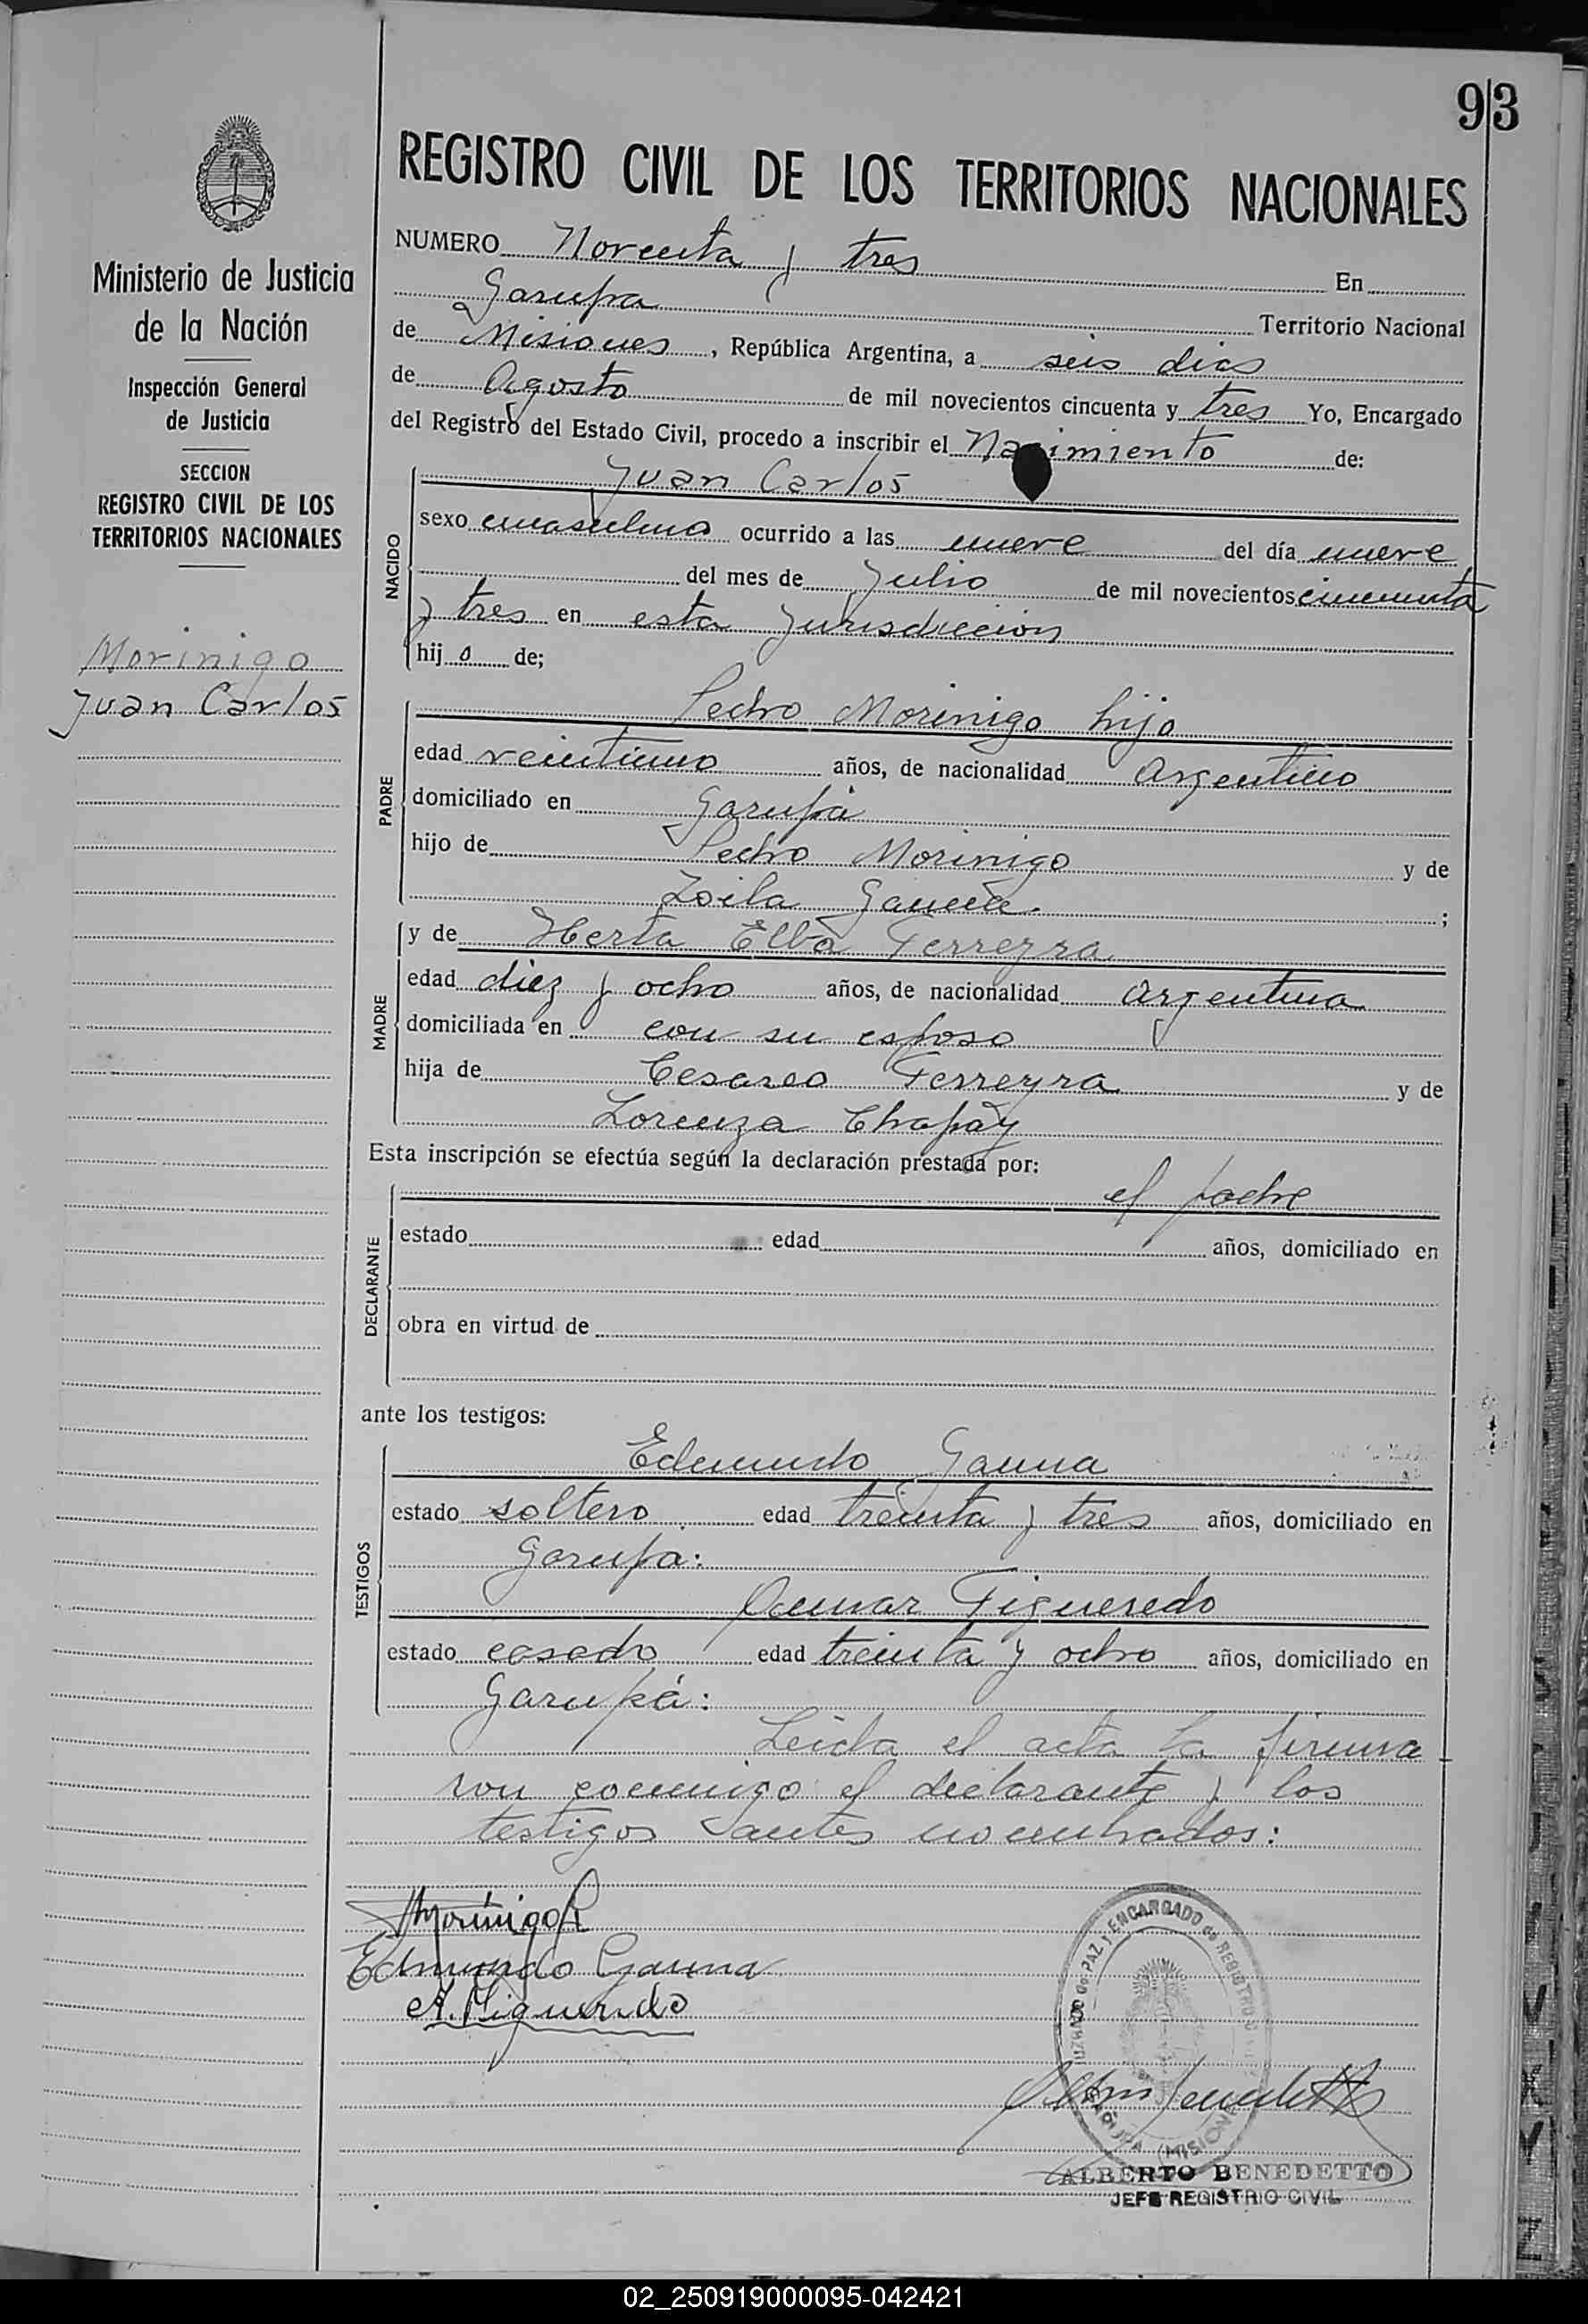 93
REGISTRO CIVIL DE LOS TERRITORIOS NACIONALES
Ministerio de Justicia
de la Nación
Inspección General
de Justicia
SECCION
REGISTRO CIVIL DE LOS
TERRITORIOS NACIONALES
Morinigo
Juan Carlos
NUMERO Noventa y tres En
Garupa Territorio Nacional
de Misiones, República Argentina, a seis dias
de Agosto de mil novecientos cincuenta y tres Yo, Encargado
del Registro del Estado Civil, procedo a inscribir el Nacimiento de:
NACIDO
Juan Carlos
sexo masculino ocurrido a las nueve del día nueve
del mes de Julio de mil novecientos cincuenta
y tres en esta Jurisdiccion
hijo de;
PADRE
Pedro Morinigo hijo
edad veintiuno años, de nacionalidad Argentino
domiciliado en Garupá
hijo de Pedro Morinigo y de
Zoila ;
MADRE
y de Herta Elba Ferreyra
edad diez y ocho años, de nacionalidad Argentina
domiciliada en con su esposo
hija de Cesareo Ferreyra y de
Lorenza Chapay
Esta inscripción se efectúa según la declaración prestada por:
DECLARANTE
el padre
estado edad años, domiciliado en
obra en virtud de
ante los testigos:
TESTIGOS
Edmundo Gauna
estado soltero edad treinta y tres años, domiciliado en
Garupa:
Figueredo
estado casado edad treinta y ocho años, domiciliado en
Garupá:
Leida el acta la firma-
ron conmigo el declarante y los
testigos antes nombrados:
Morinigo P
Edmundo Gauna
A. Figueredo
JUZGADO de PAZ y ENCARGADO de REGISTRO
GARUPA (MISIONES)
ALBERTO BENEDETTO
JEFE REGISTRO CIVIL
02_250919000095-042421